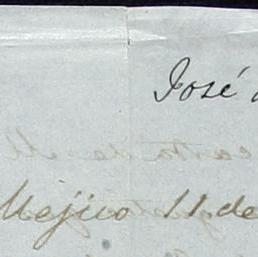 José
Mejico 11 de